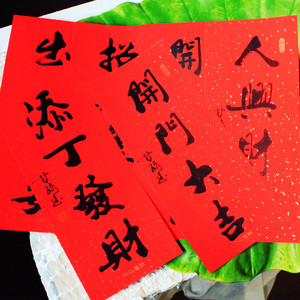 人興財
開
開門大吉
招
添丁發財
出